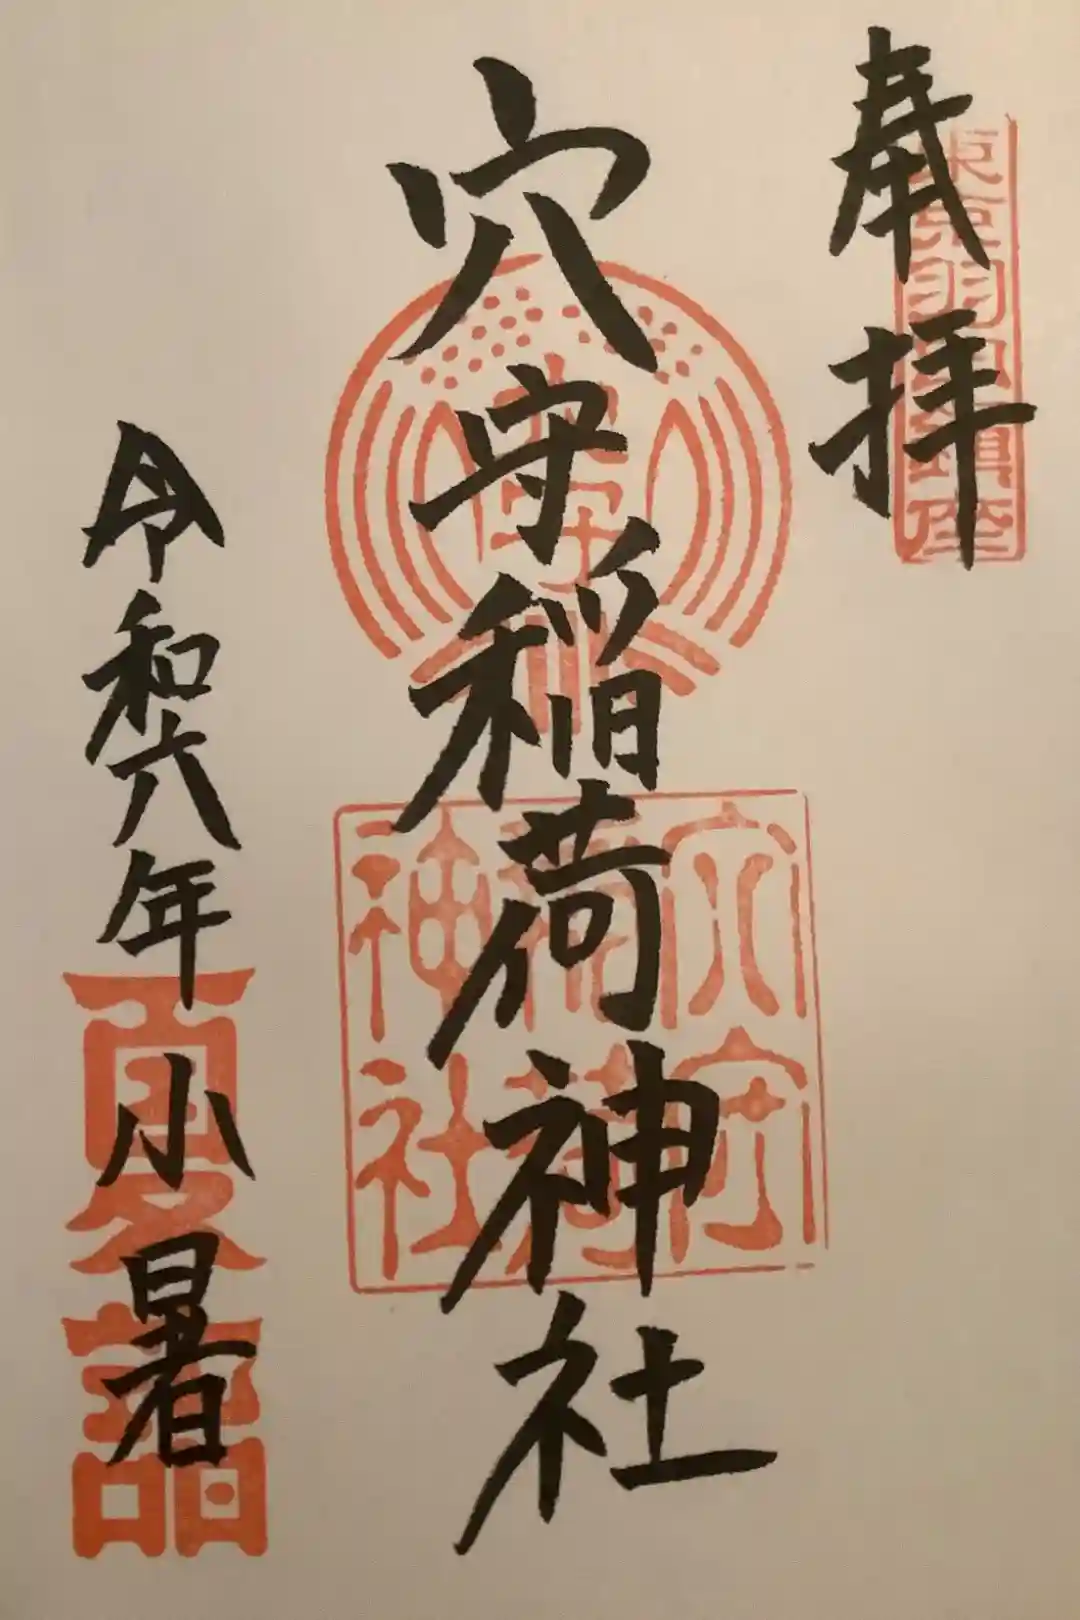 奉拝
東京羽田鎮座
穴守稲荷神社
穴守
稲荷
神社
令和六年小暑
夏詣